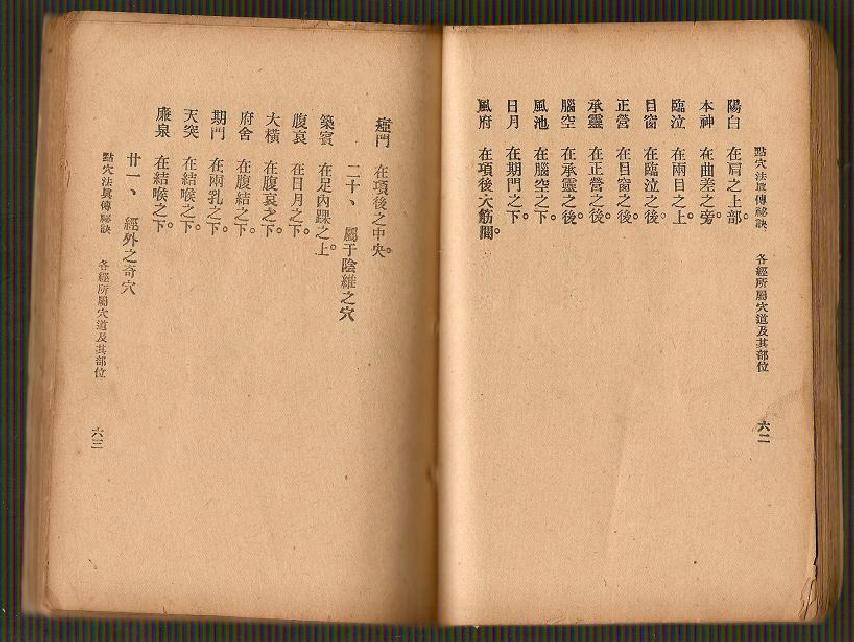 點穴法眞傳秘訣 各經所屬穴道及其部位 六二
陽白 在肩之上部。
本神 在曲差之旁。
臨泣 在兩目之上。
目窗 在臨泣之後。
正營 在目窗之後。
承靈 在正營之後。
腦空 在承靈之後。
風池 在腦空之下。
日月 在期門之下。
風府 在項後大筋間。
瘂門 在項後之中央。
二十、屬于陰維之穴
築賓 在足內踝之上。
腹哀 在日月之下。
大橫 在腹哀之下。
府舍 在腹結之下。
期門 在兩乳之下。
天突 在結喉之下。
廉泉 在結喉之下。
廿一、經外之奇穴
點穴法眞傳秘訣 各經所屬穴道及其部位 六三